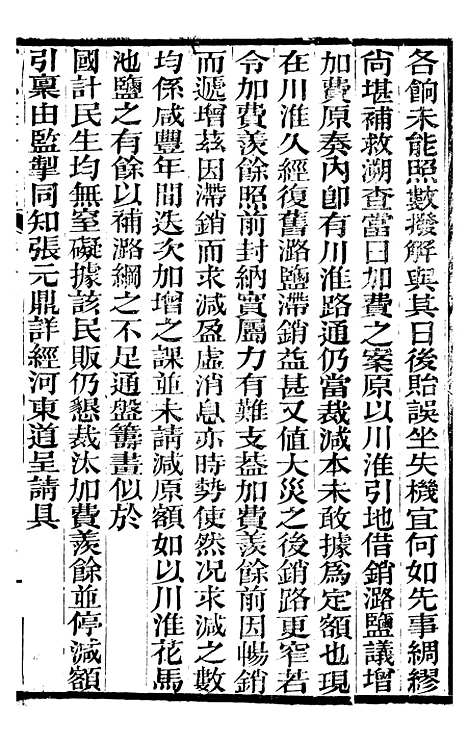 各餉未能照數撥解與其日後貽誤坐失機宜何如先事綢繆
尙堪補救溯查當日加費之案原以川淮引地借銷潞鹽議增
加費原奏內卽有川淮路通仍當裁減本未敢據爲定額也現
在川淮久經復舊潞鹽滯銷益甚又値大災之後銷路更窄若
令加費羨餘照前封納實屬力有難支葢加費羨餘前因暢銷
而遞增茲因滯銷而求減盈虛消息亦時勢使然况求減之數
均係咸豐年間迭次加增之課並未請減原額如以川淮花馬
池鹽之有餘以補潞綱之不足通盤籌畫似於
國計民生均無窒礙據該民販仍懇裁汰加費羨餘並停減額
引稟由監掣同知張元鼎詳經河東道呈請具